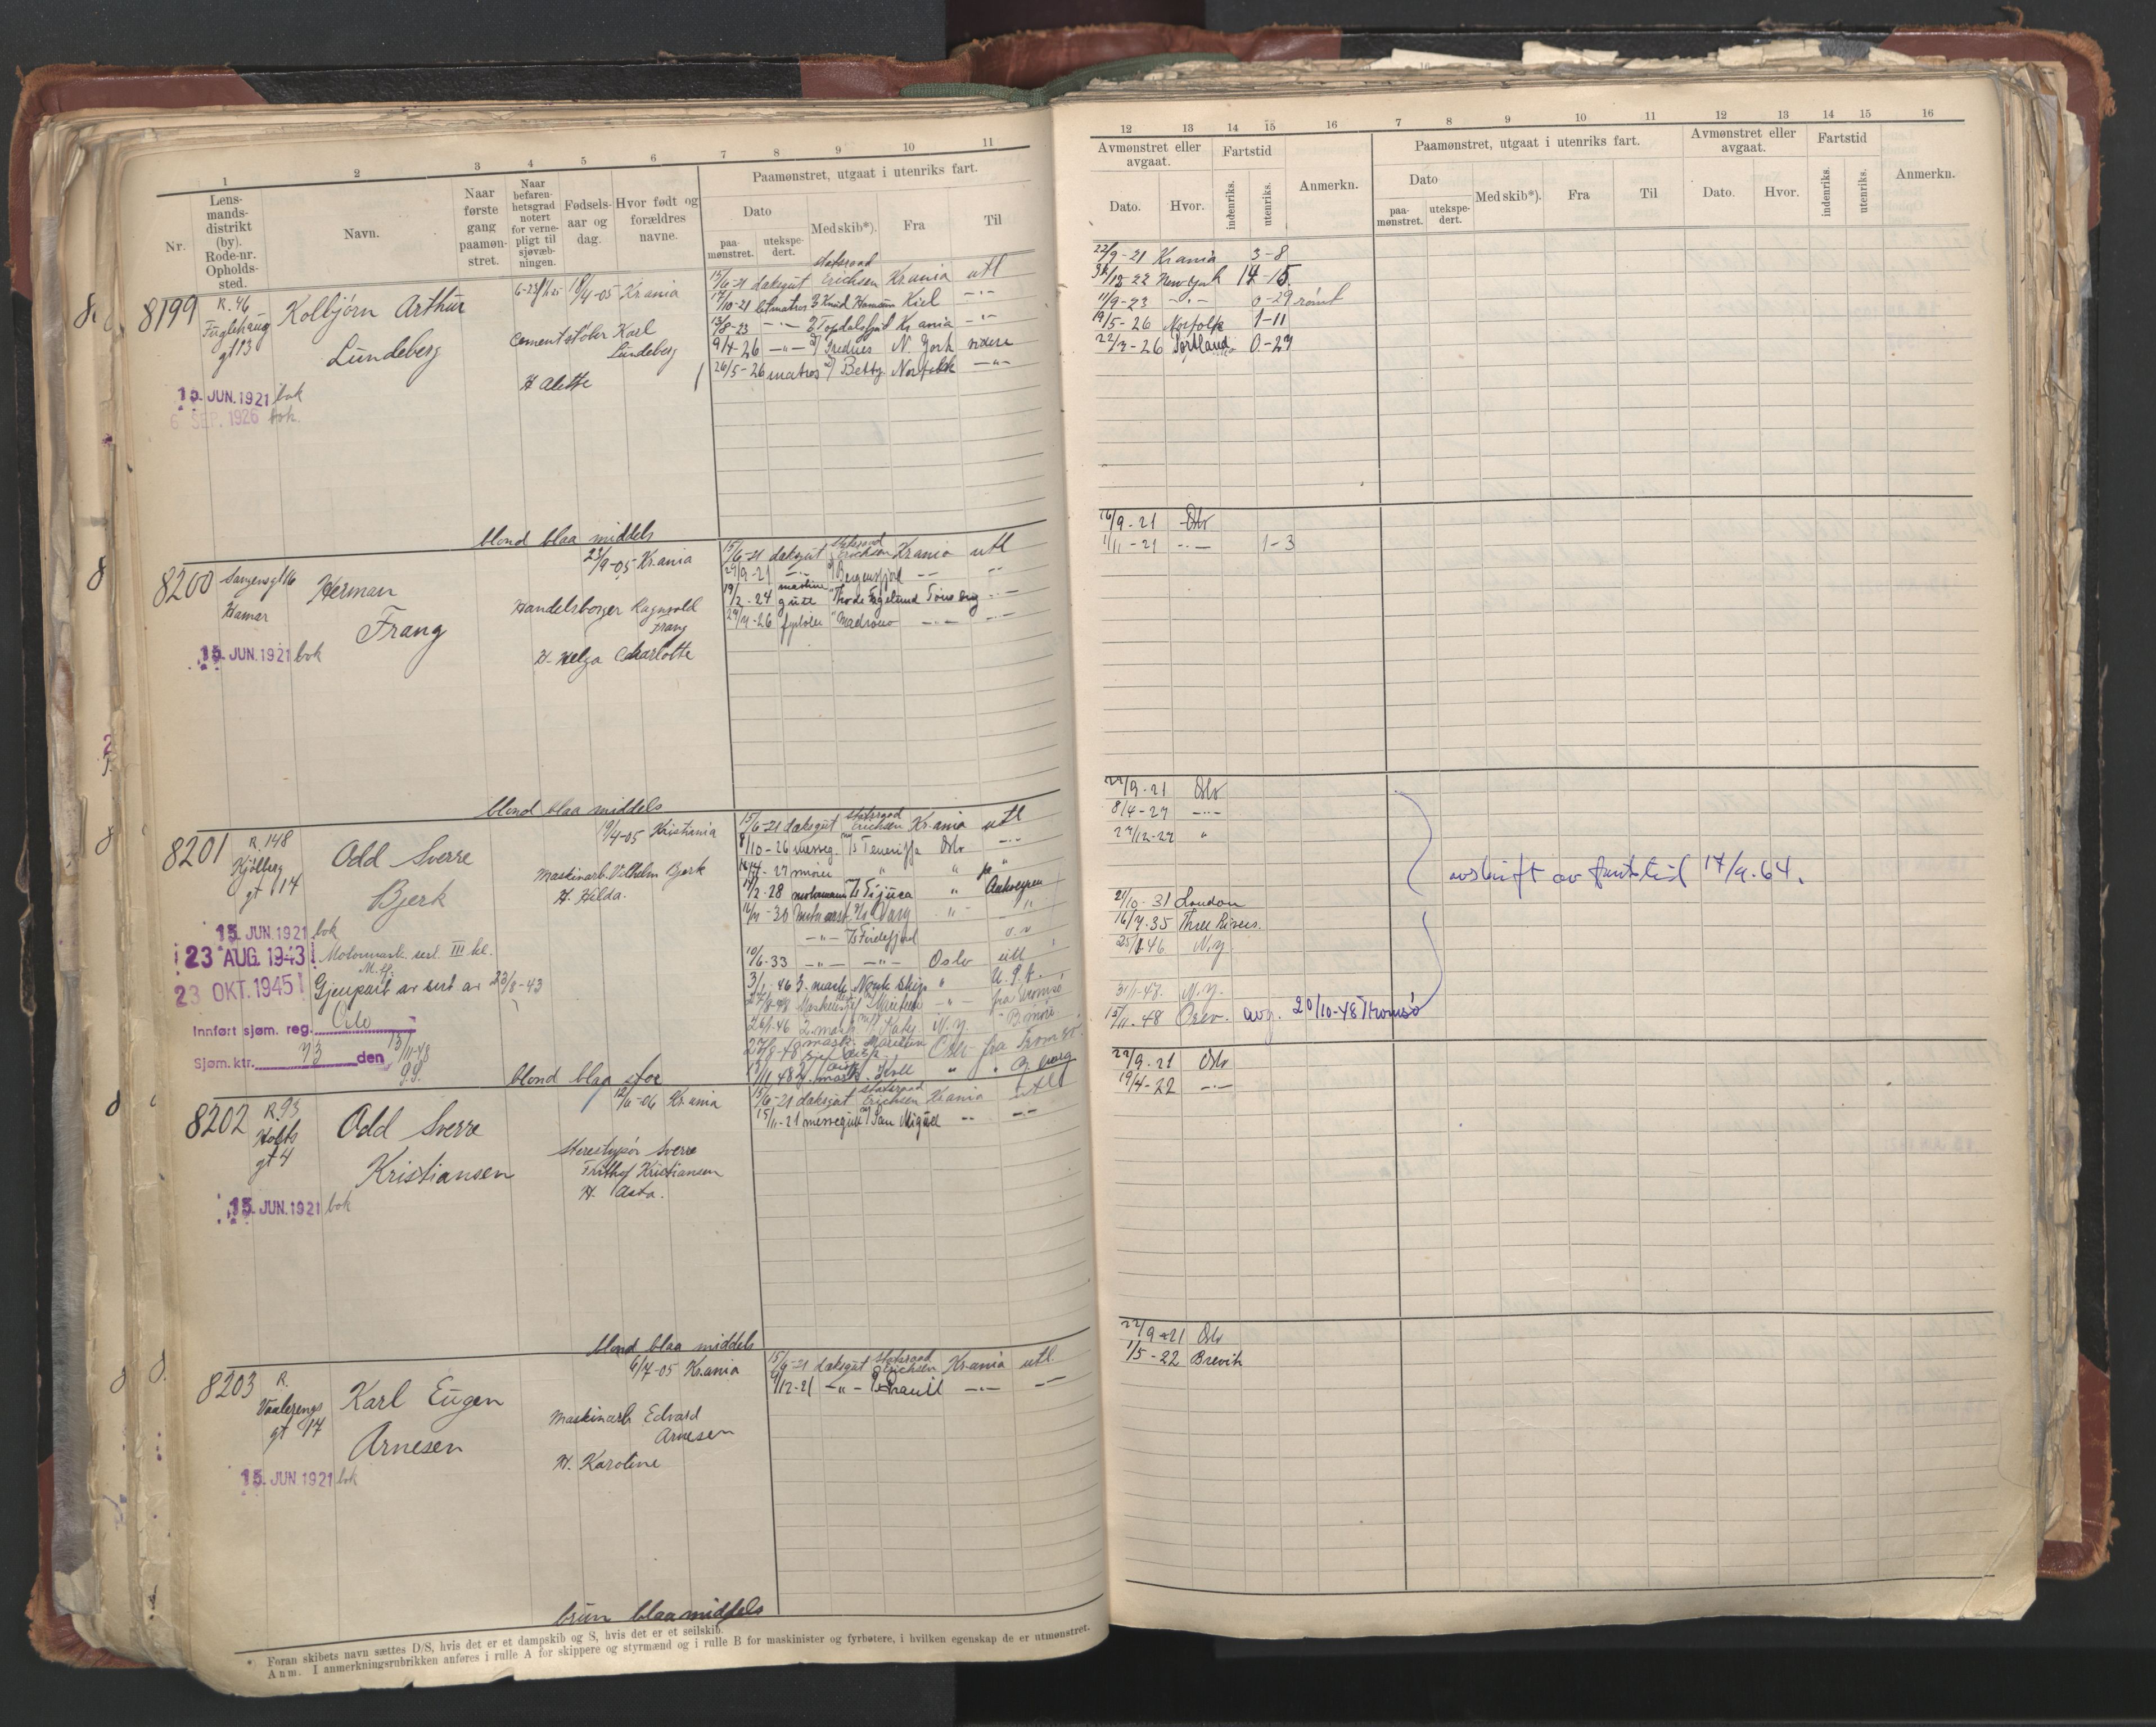 1 2 3 4 5 6 7 8 9 10 11
Nr.
Lens-
mands-
distrikt
(by).
Rode-nr.
Opholds-
sted.
Navn.
Naar
første
gang
paamøn-
stret.
Naar
befaren-
hetsgrad
notert
for verne-
pligt til
sjøvæb-
ningen.
Fødsels-
aar og
dag.
Hvor født og
forældres
navne.
Paamønstret, utgaat i utenriks fart.
Dato
paa-
mønstret.
utekspe-
dert.
Med skib*).
Fra
Til
8199 R. 46 Kolbjørn Arthur 18/4-05 Kr.ania
Fuglehaug
gt 13 Lundeberg
Cementstøber Karl
Lundeberg
H Alette
15. JUN. 1921 bok
6 SEP. 1926 bok.
15/6-21 daksgut Statsraad Erichsen Kr.ania utl
17/10-21 letmatros Knud Kiel -"-
13/8-23 -"- Topdalsfjord Kr.ania -"-
9/4-26 -"- N. York videre
26/5-26 matros Betty Norfolk -"-
blond blaa middels
8200 Sangensgt 16 Herman 23/9-05 Kr.ania
Hamar Frang
Handelsborger Ragnvald
Frang
H. Helga Charlotte
15. JUN. 1921 bok
15/6-21 daksgut Statsraad Erichsen Kr.ania utl
29/9-21 -"- Bergensfjord -"- -"-
19/2-24 maskingutt Thode Fagelund Tønsberg -"-
fyrbøter -"- -"-
blond blaa middels
8201 R. 148 Odd Sverre 19/4-05 Kristiania
Kjølberg
gt 14 Bjerk
Maskinarb. Vilhelm Bjerk
H. Hilda.
15. JUN. 1921 bok
23 AUG. 1943 Motormask. sert. III kl.
23 OKT. 1945 Gjenpart av sert av 23/8-43
Innført sjøm. reg. Oslo
Sjøm. ktr. 73 den 13/11-48
15/6-21 daksgut Statsraad Erichsen Kr.ania utl
8/10-26 messeg. Teneriffa Oslo -"-
motormann Tijuca " Antwerpen
Varg " "
-"- Firdefjord
10/6-33 -"- -"- Oslo utl
3/1-46 3. mask Norsk skip "
2. mask. N.y.
27/8-48 mask. Oslo fra Tromsø
mask. Koll "
blond blaa stor
8202 R. 93 Odd Sverre 12/6-06 Kr.ania
Holts
gt 4 Kristiansen
Stereotypør Sverre
Frithof Kristiansen
H. Asta.
15. JUN. 1921 bok
15/6-21 daksgut Statsraad Erichsen Kr.ania utl
15/11-21 messegutt San Miguel -"- -"-
blond blaa middels
8203 R. Karl Eugen 6/7-05 Kr.ania
Vaalerengs
gt 14 Arnesen
Maskinarb Edvard
Arnesen
H. Karoline
15. JUN 1921 bok
15/6-21 daksgut Statsraad Erichsen Kr.ania utl.
9/12-21 -"- -"- -"-
brun blaa middels
*) Foran skibets navn sættes D/S, hvis det er et dampskib og S, hvis det er et seilskib.
Anm. I anmerkningsrubrikken anføres i rulle A for skippere og styrmænd og i rulle B for maskinister og fyrbøtere, i hvilken egenskap de er utmønstret.
12 13 14 15 16 7 8 9 10 11 12 13 14 15 16
Avmønstret eller
avgaat.
Dato. Hvor.
Fartstid
indenriks. utenriks.
Anmerkn.
Paamønstret, utgaat i utenriks fart.
Dato
paa-
mønstret.
utekspe-
dert.
Med skib*). Fra Til
Avmønstret eller
avgaat.
Dato. Hvor.
Fartstid
indenriks. utenriks.
Anmerkn.
22/9-21 Krania 3-8
31/12-22 New York 14-15
11/9-23 -"- 0-29 rømt
19/5-26 Norfolk 1-11
22/7-26 Portland 0-27
16/9-21 Oslo
1/11-21 -"- 1-3
22/9-21 Oslo
8/4-27 -"-
27/12-27 "
avskrift av fartstid 17/9.64.
21/10-31 London
16/7-35 Three Rivers.
25/1-46 N.y.
31/1-47. N.y.
15/11-48 avg. 20/10-48 Tromsø
22/9-21 Oslo
19/4-22 -"-
22/9-21 Oslo
1/5-22 Brevik